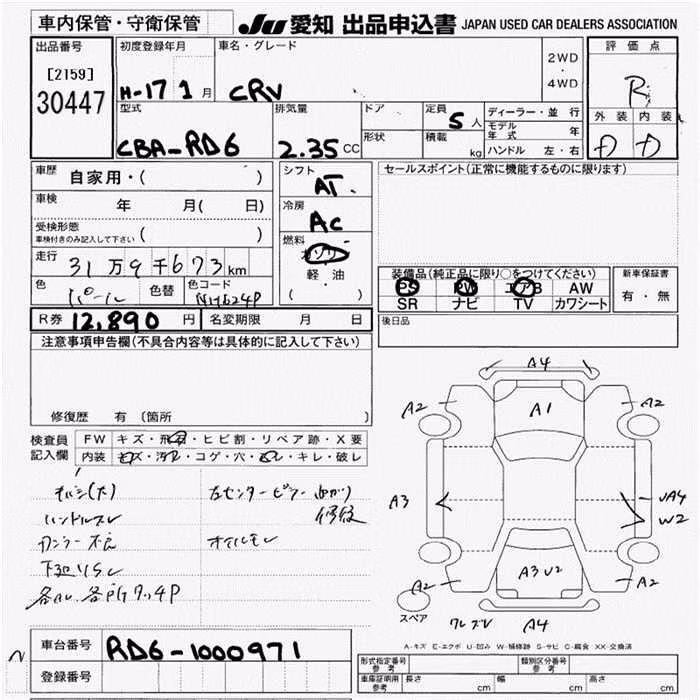 車内保管・守衛保管
JU 愛知 出品申込書 JAPAN USED CAR DEALERS ASSOCIATION
出品番号
[2159]
30447
初度登録年月
H-17 1月
車名・グレード
CRV
2WD
・
4WD
評価点
R
外装 内装
D D
型式
CBA-RD6
排気量
2.35 CC
ドア
形状
定員 5人
積載 kg
ディーラー・並行
モデル年式 年
ハンドル 左・右
車歴 自家用・( )
車検 年 月( 日)
受検形態
車検付きのみ記入して下さい ( )
走行 31万9千673km
色 パール 色替 色コード NH624P
シフト
AT
冷房
AC
燃料
ガソリン
軽・油
( )
セールスポイント(正常に機能するものに限ります)
装備品(純正品に限り○をつけてください)
PS PW エアB AW
SR ナビ TV カワシート
新車保証書
有・無
R券 12,890 円 名変期限 月 日
後日品
注意事項申告欄(不具合内容等は具体的に記入して下さい)
修復歴 有 (箇所
検査員記入欄
FW キズ・飛石・ヒビ割・リペア跡・X要
内装 キズ・汚れ・コゲ・穴・スレ・キレ・破レ
左センターピラー曲がり
修復
ハンドルスレ
オイルモレ
下廻りサビ
A4
A2 A1 A2
A3 A4
W2
A3 U2
A2 A2
スペア
A4
A-キズ E-エクボ U-凹み W-補修跡 S-サビ C-腐食 XX-交換済
車台番号 RD6-1000971
登録番号
形式指定番号 参考
類別区分番号 参考
車庫証明用 参考 長さ cm 幅 cm 高さ cm